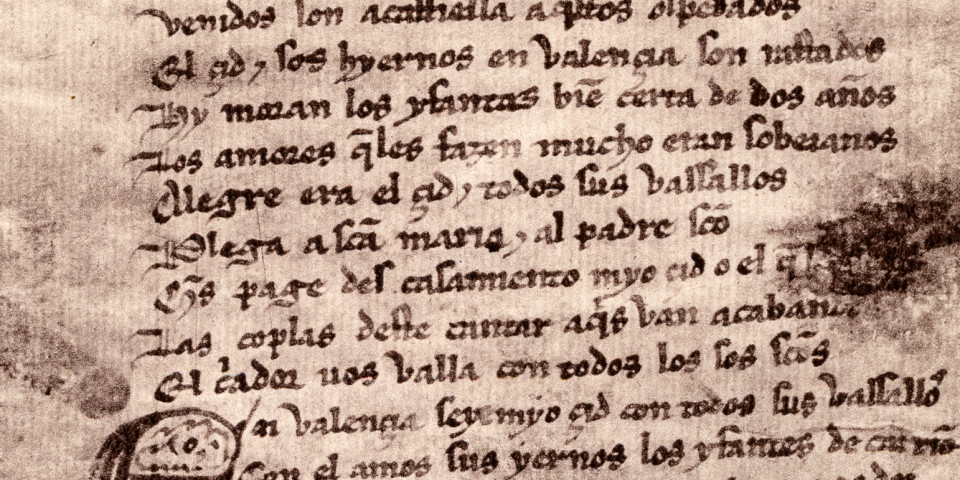 venidos son
El çid ⁊ sos hyernos en valençia son
Hy moran los yfantes biē çerca de dos años
Los amores q̄les fazen mucho eran sobeianos
Alegre era el çid ⁊ todos sus vassallos
Plega a scā maria ⁊ al padre scō
Q̄s page des casamiento myo çid o el q̄
Las coplas deste cantar aq̄s van acaband
El c̄ador uos valla con todos los sos scōs
En valençia seye myo çid con todos sus vassallos
Con el amos sus yernos los yfantes de carriō